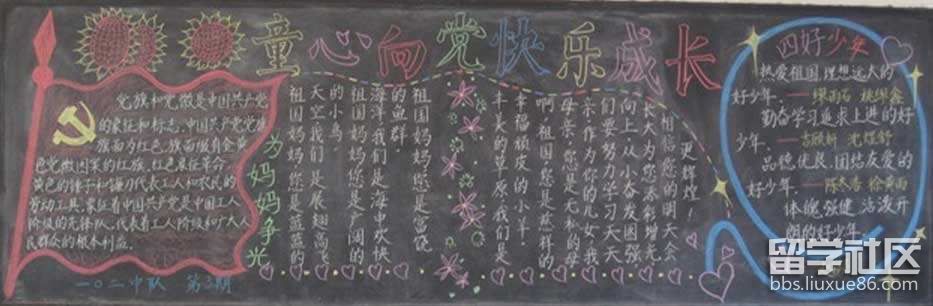 童心向党快乐成长
党旗和党徽是中国共产党
的象征和标志。中国共产党党旗
旗面为红色,旗面缀有金黄
色党徽图案的红旗。红色象征革命,
黄色的锤子和镰刀代表工人和农民的
劳动工具,象征着中国共产党是中国工人
阶级的先锋队,代表着工人阶级和广大人
民群众的根本利益。
一〇二中队 第2期
为妈妈争光
祖国妈妈,您是蓝蓝的
天空,我们是展翅高飞
的小鸟。
祖国妈妈,您是广阔的
海洋,我们是海中欢快
的鱼群。
祖国妈妈,您是富饶
丰美的草原,我们是
幸福顽皮的小羊。
啊,祖国,您是慈祥的
母亲,你是无私的母
亲,作为你的儿女,我
们要努力学习,天天
向上,从小奋发图强,
长大为您添彩增光。
相信您的明天会
更辉煌!
四好少年
热爱祖国,理想远大的
好少年。——
勤奋学习追求上进的好
少年。——
品德优良,团结友爱的
好少年。——
体魄强健,活泼开
朗的好少年。
留学社区
bbs.liuxue86.com